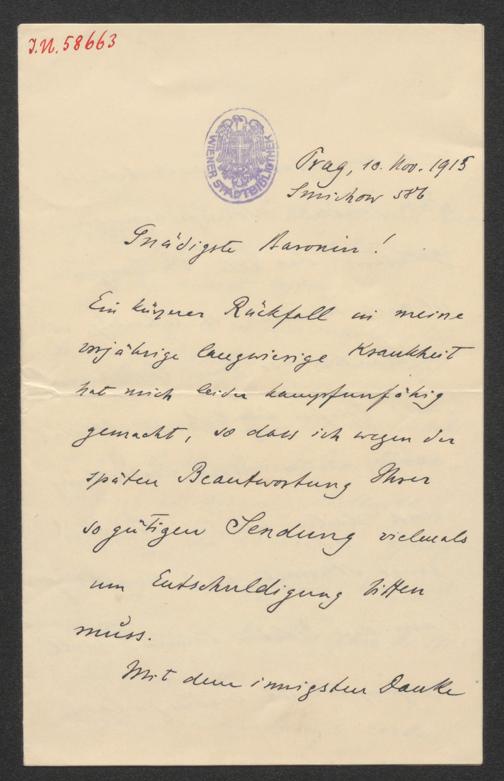 J.N. 58663
WIENER STADTBIBLIOTHEK
Prag, 10. Nov. 1915
Smichow 586
Gnädigste Baronin!
Ein kurzer Rückfall in meine
vorjährige langwierige Krankheit
hat mich leider kampfunfähig
gemacht, so dass ich wegen der
späten Beantwortung Ihrer
so gütigen Sendung vielmals
um Entschuldigung bitten
muss.
Mit dem innigsten Danke